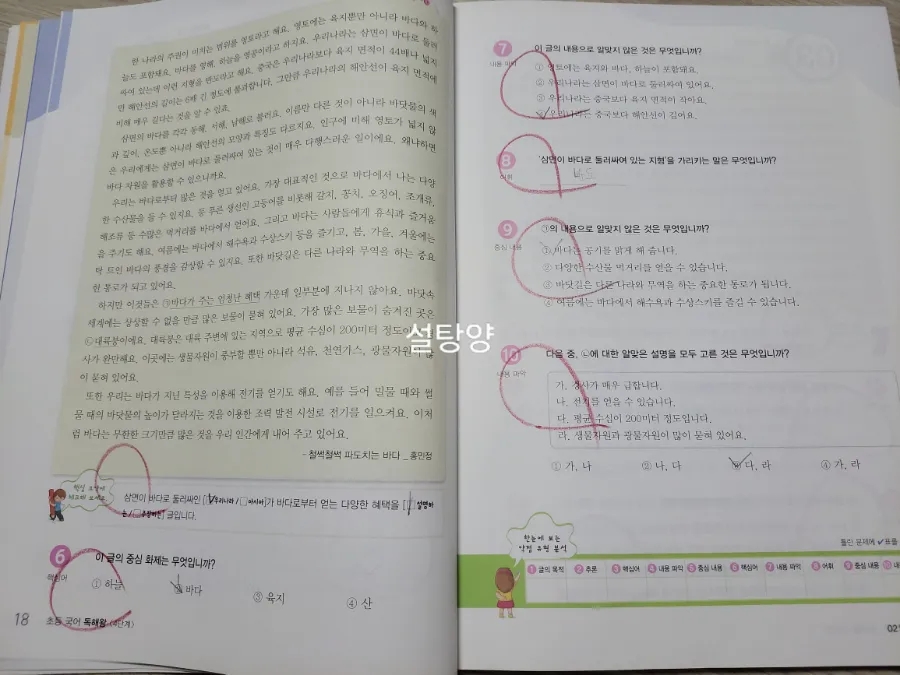 한 나라의 주권이 미치는 범위를 영토라고 해요. 영토에는 육지뿐만 아니라 바다와 하
늘도 포함돼요. 바다를 영해, 하늘을 영공이라고 하지요. 우리나라는 삼면이 바다로 둘러
싸여 있는데 이런 지형을 반도라고 해요. 중국은 우리나라보다 육지 면적이 44배나 넓지
만 해안선의 길이는 6배 긴 정도에 불과합니다. 그만큼 우리나라의 해안선이 육지 면적에
비해 매우 길다는 것을 알 수 있죠.
삼면의 바다를 각각 동해, 서해, 남해로 불러요. 이름만 다른 것이 아니라 바닷물의 색
과 깊이, 온도뿐 아니라 해안선의 모양과 특징도 다르지요. 인구에 비해 영토가 넓지 않
은 우리에게는 삼면이 바다로 둘러싸여 있는 것이 매우 다행스러운 일이에요. 왜냐하면
바다 자원을 활용할 수 있으니까요.
우리는 바다로부터 많은 것을 얻고 있어요. 가장 대표적인 것으로 바다에서 나는 다양
한 수산물을 들 수 있지요. 등 푸른 생선인 고등어를 비롯해 갈치, 꽁치, 오징어, 조개류,
해조류 등 수많은 먹거리를 바다에서 얻어요. 그리고 바다는 사람들에게 휴식과 즐거움
을 주기도 해요. 여름에는 바다에서 해수욕과 수상스키 등을 즐기고, 봄, 가을, 겨울에는
탁 트인 바다의 풍경을 감상할 수 있지요. 또한 바닷길은 다른 나라와 무역을 하는 중요
한 통로가 되고 있어요.
하지만 이것들은 ㉠바다가 주는 엄청난 혜택 가운데 일부분에 지나지 않아요. 바닷속
세계에는 상상할 수 없을 만큼 많은 보물이 숨겨진 곳은
㉡대륙붕이에요. 대륙붕은 대륙 주변에 있는 지역으로 평균 수심이 200미터 정도이
사가 완만해요. 이곳에는 생물자원이 풍부할 뿐만 아니라 석유, 천연가스, 광물자원
이 묻혀 있어요.
또한 우리는 바다가 지닌 특성을 이용해 전기를 얻기도 해요. 예를 들어 밀물 때와 썰
물 때의 바닷물의 높이가 달라지는 것을 이용한 조력 발전 시설로 전기를 일으켜요. 이처
럼 바다는 무한한 크기만큼 많은 것을 우리 인간에게 내어 주고 있어요.
- 철썩철썩 파도치는 바다 _ 홍민정
삼면이 바다로 둘러싸인 [☑우리나라 / □아시아]가 바다로부터 얻는 다양한 혜택을 [☑설명하
는 / □주장하는] 글입니다.
6 이 글의 중심 화제는 무엇입니까?
핵심어
① 하늘 ② 바다 ③ 육지 ④ 산
18 초등 국어 독해왕 (4단계)
7 이 글의 내용으로 알맞지 않은 것은 무엇입니까?
내용 파악
① 영토에는 육지와 바다, 하늘이 포함돼요.
② 우리나라는 삼면이 바다로 둘러싸여 있어요.
③ 우리나라는 중국보다 육지 면적이 작아요.
④ 우리나라는 중국보다 해안선이 길어요.
8 '삼면이 바다로 둘러싸여 있는 지형'을 가리키는 말은 무엇입니까?
어휘
반도
9 ㉠의 내용으로 알맞지 않은 것은 무엇입니까?
중심 내용
① 바다는 공기를 맑게 해 줍니다.
② 다양한 수산물 먹거리를 얻을 수 있습니다.
③ 바닷길은 다른 나라와 무역을 하는 중요한 통로가 됩니다.
④ 여름에는 바다에서 해수욕과 수상스키를 즐길 수 있습니다.
설탕양
10 다음 중, ㉡에 대한 알맞은 설명을 모두 고른 것은 무엇입니까?
내용 파악
가. 경사가 매우 급합니다.
나. 전기를 얻을 수 있습니다.
다. 평균 수심이 200미터 정도입니다.
라. 생물자원과 광물자원이 많이 묻혀 있어요.
① 가, 나 ② 나, 다 ③ 다, 라 ④ 가, 라
한눈에 보는
약점 유형 분석
틀린 문제에 ✔표를
1 글의 목적 2 추론 3 핵심어 4 내용 파악 5 중심 내용 6 핵심어 7 내용 파악 8 어휘 9 중심 내용 10 내용